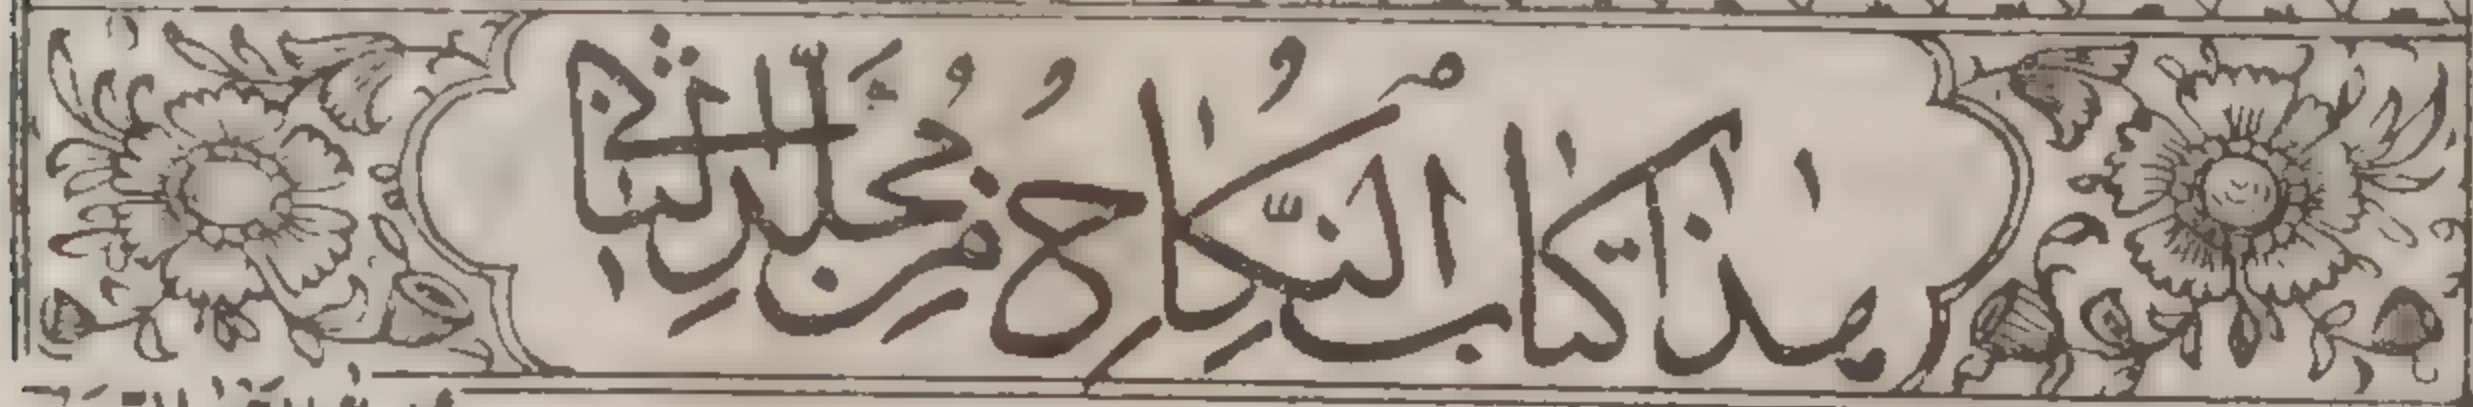 هٰذَا كِتَابُ النِّكَاحِ مِنْ مُجَلَّدِ الثَّانِي